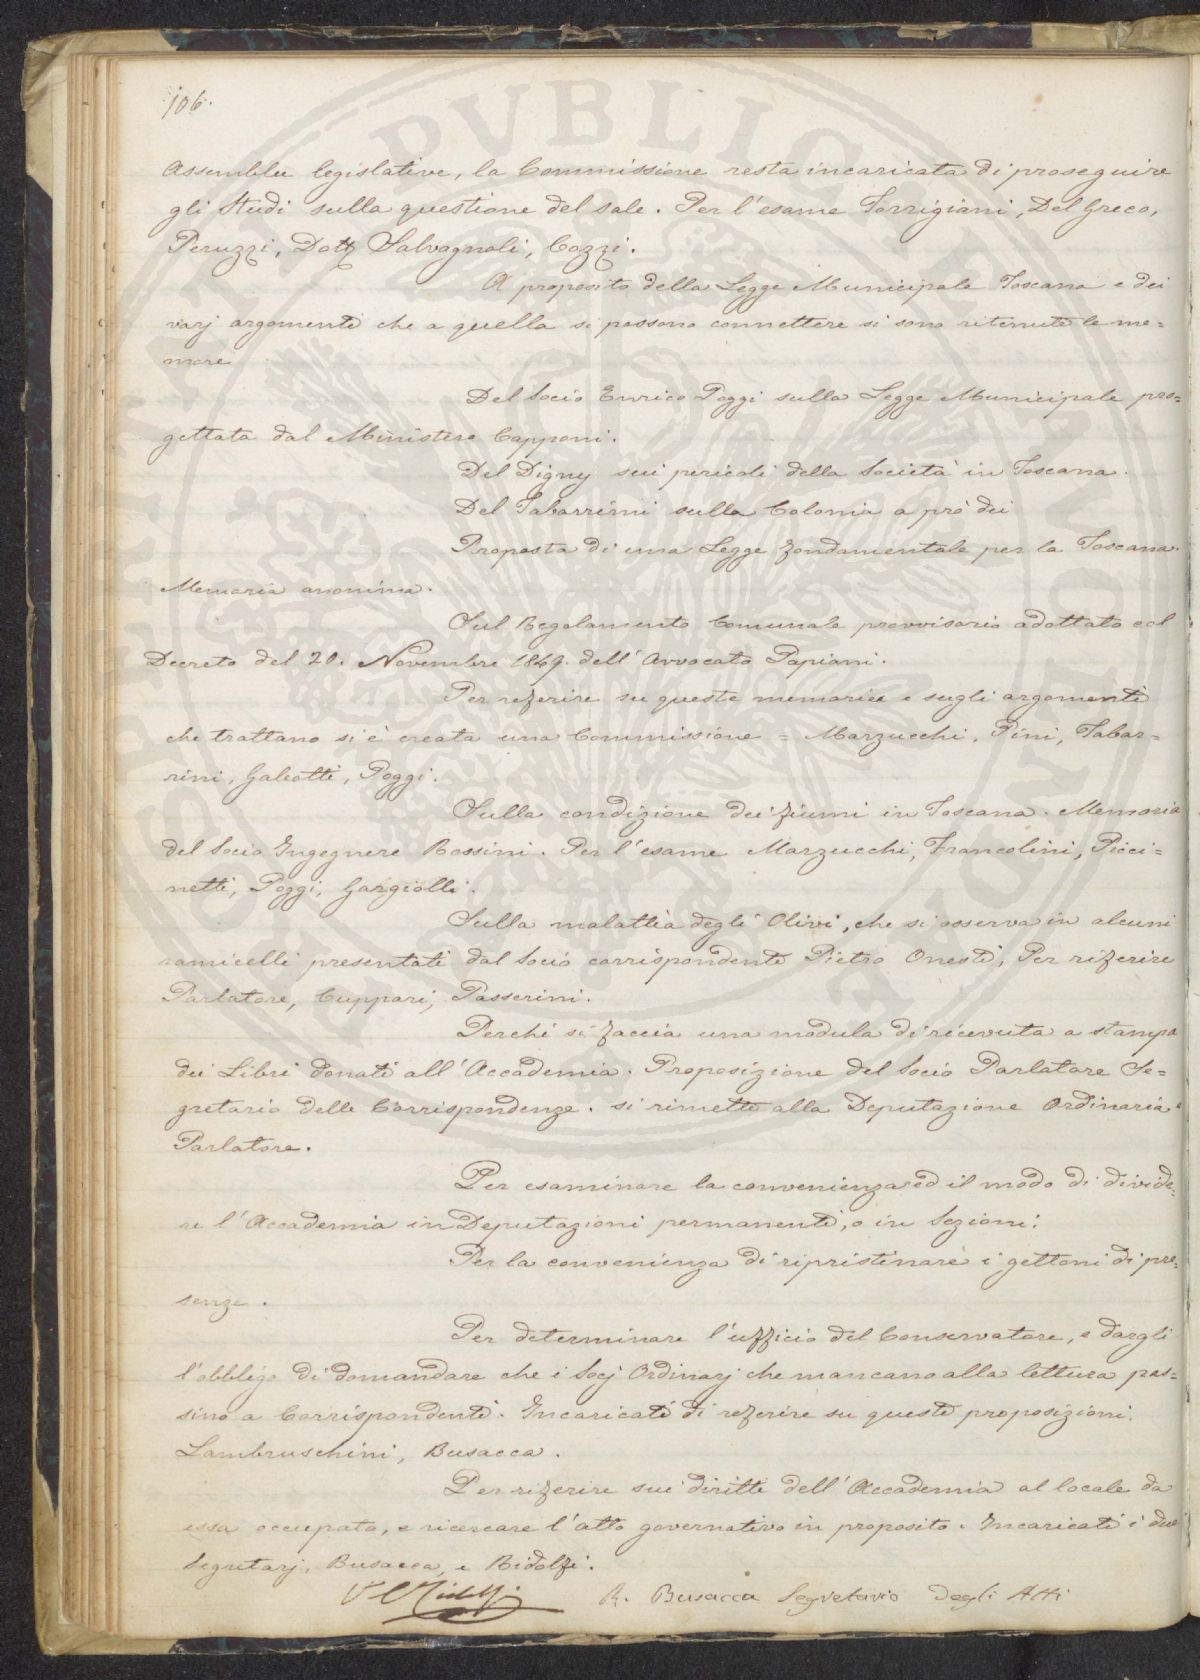 106.
Assemblee legislative, la Commissione resta incaricata di proseguire
gli Studi sulla questione del sale. Per l'esame Torrigiani, Del Greco,
Peruzzi, Dott Salvagnoli, Cozzi.
A proposito della Legge Municipale Toscana e dei
varj argomenti che a quella si possono connettere si sono ritenute le me=
morie
Del Socio Enrico Poggi sulla Legge Municipale pro=
gettata dal Ministero Capponi.
Del Digny sui pericoli della Società in Toscana.
Del Tabarrini sulla Colonia a prò dei
Proposta di una Legge fondamentale per la Toscana.
Memoria anonima.
Sul Regolamento Comunale provvisorio adottato col
Decreto del 20. Novembre 1849. dell'Avvocato Papiani.
Per referire su queste memorie e sugli argomenti
che trattano si è creata una Commissione = Marzucchi, Pini, Tabar=
rini, Galeotti, Poggi.
Sulla condizione dei fiumi in Toscana. Memoria
del Socio Ingegnere Rossini. Per l'esame Marzucchi, Francolini, Picci=
netti, Poggi, Gargiolli.
Sulla malattia degli Olivi, che si osserva in alcuni
ramicelli presentati dal Socio corrispondente Pietro Onesti, Per riferire
Parlatore, Cuppari, Passerini.
Perchè si faccia una modula di ricevuta a stampa
dei Libri donati all'Accademia. Proposizione del Socio Parlatore Se=
gretario delle Corrispondenze. si rimette alla Deputazione Ordinaria e
Parlatore.
Per esaminare la convenienza ed il modo di divide=
re l'Accademia in Deputazioni permanenti, o in Sezioni.
Per la convenienza di ripristinare i gettoni di pre=
senze.
Per determinare l'ufficio del Conservatore, e dargli
l'obbligo di domandare che i Socj Ordinarj che mancano alla lettura pas=
sino a Corrispondenti. Incaricati di referire su queste proposizioni.
Lambruschini, Busacca.
Per riferire sui diritti dell'Accademia al locale da
essa occupato, e ricercare l'atto governativo in proposito. Incaricati i due
Segretarj, Busacca e Ridolfi.
R. Busacca Segretario degli Atti
PVBLICAE